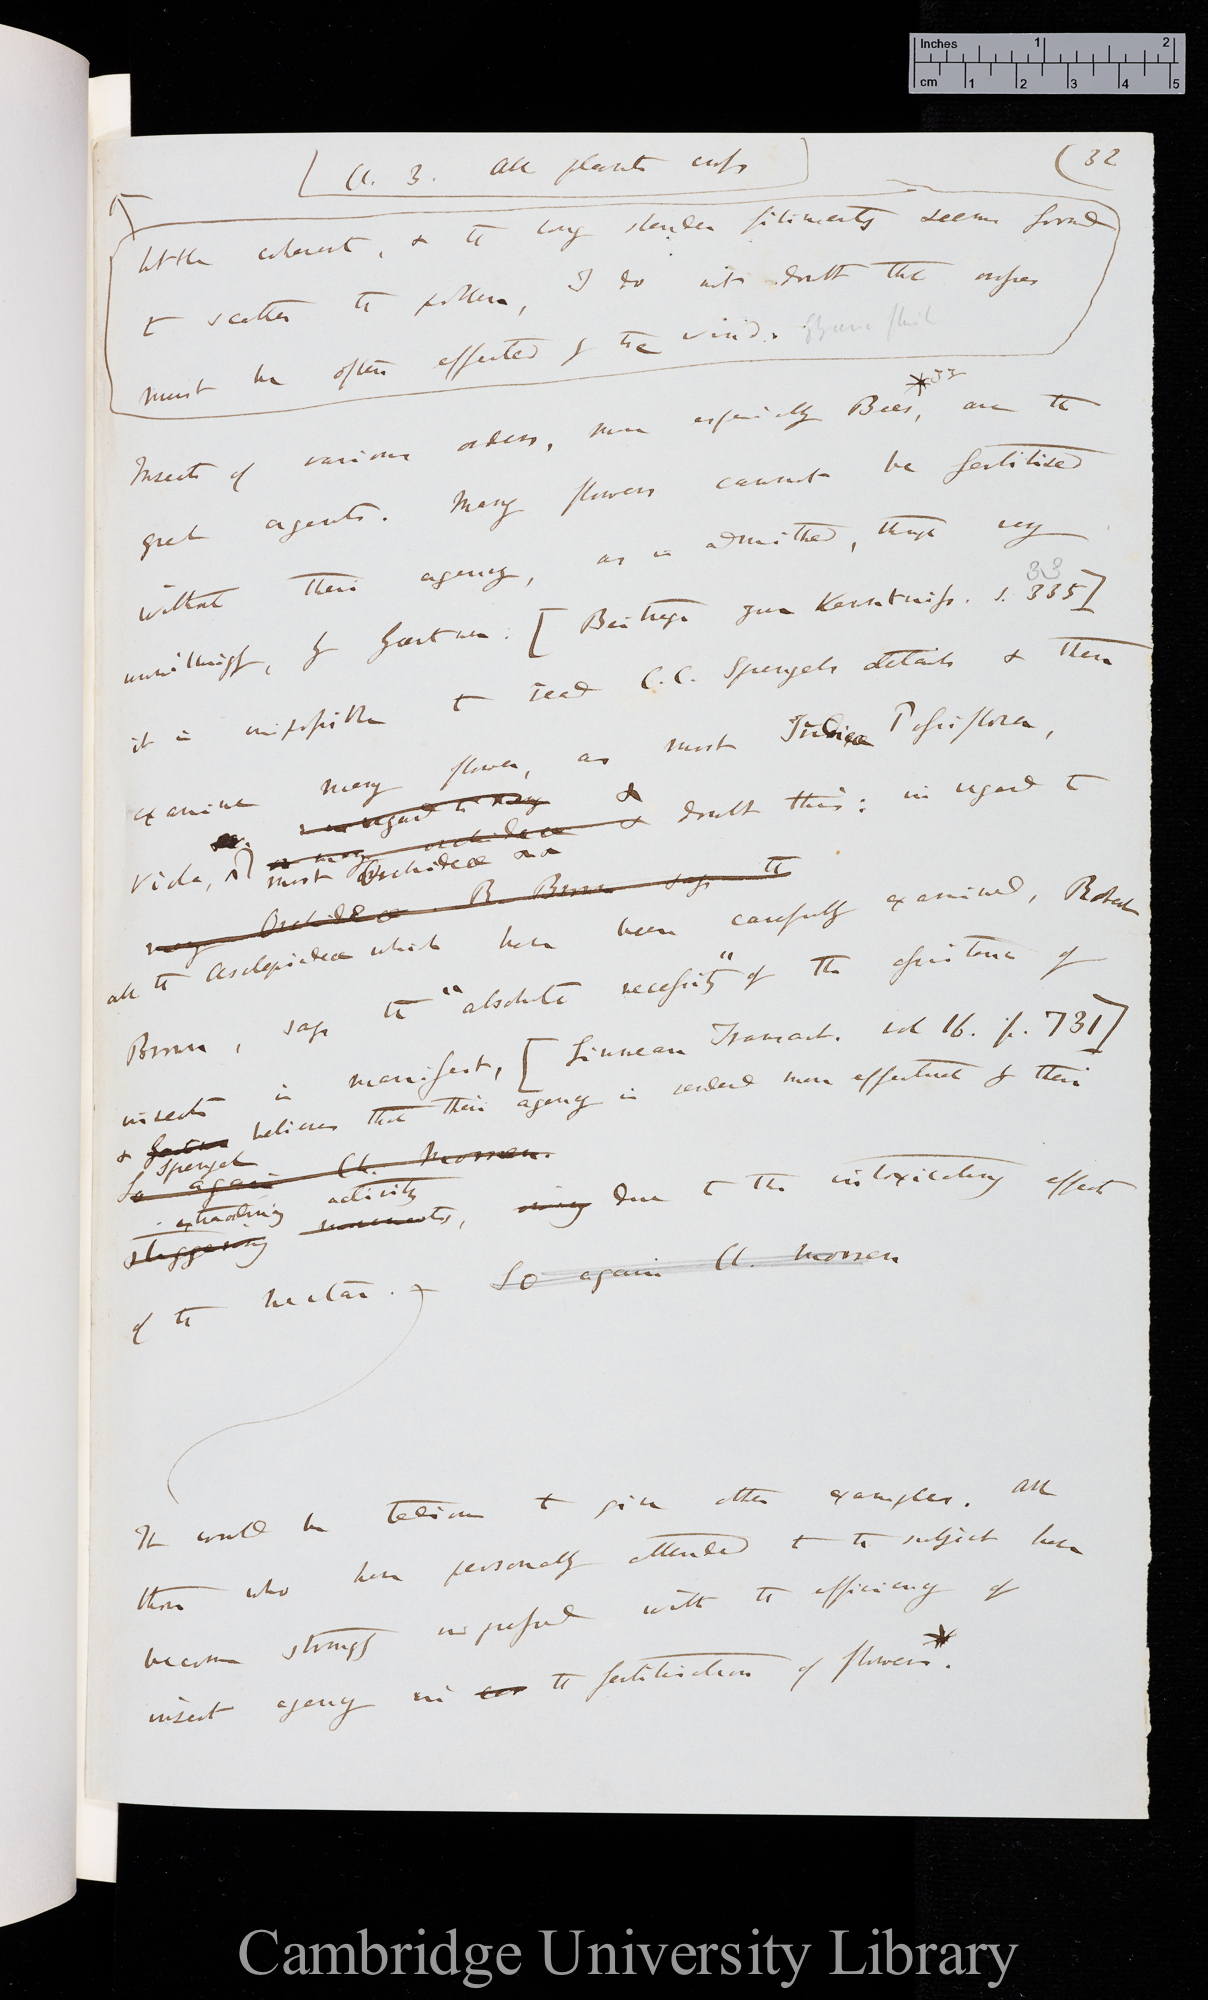 Inches 1 2
cm 1 2 3 4 5
Ch. 3. All plants cross
(32
little coherent, & the long slender filiments seems formed
to scatter the pollen, I do not doubt that crosses
must be often effected by the wind.
Insects of various orders, more especially Bees,* are the
great agents. Many flowers cannot be fertilised
without their agency, as is admitted, though very
33
unwillingly, by Gærtner. [Beitrage zur Kenntniss. s. 335]
it is impossible to read C.C. Sprengels details & then
examine many flowers, as most Irideæ Passiflora,
in regard to many &
Viola, as many orchideæ & doubt this: in regard to
most Orchideæ
many Orchideæ. R. Brown says the
all the Asclepiadeæ which have been carefully examined, Robert
Brown, says the "absolute necessity" of the assistance of
insects is manifest, [Linnean Transact. vol 16. p. 731]
& believes that their agency is rendered more effectual by their
Sprengel
So again Ch. Morren.
extraordinary activity
staggering movements, owing due to the intoxicating effects
of the nectar. So again Ch. Morren
It would be tedious to give other examples. All
those who have personally attended to the subject have
become strongly impressed with the efficiency of
insect agency in the fertilisation of flowers*.
Cambridge University Library